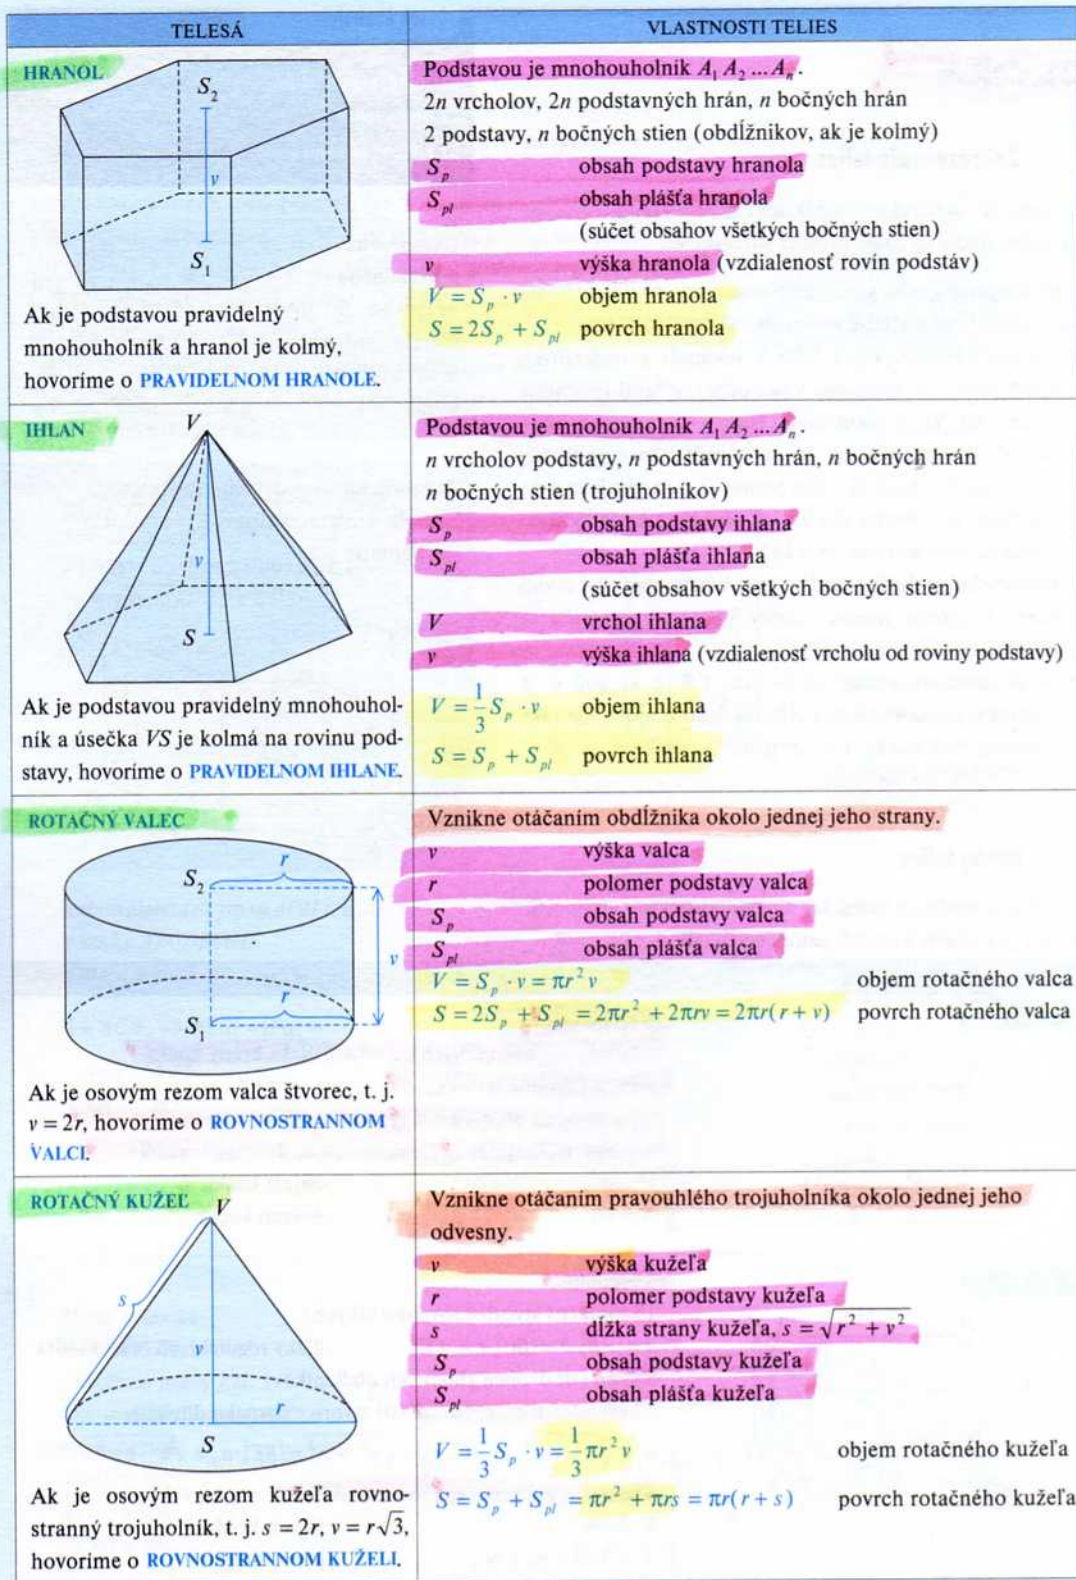 TELESÁ
VLASTNOSTI TELIES
HRANOL
S₂
v
S₁
Ak je podstavou pravidelný
mnohouholník a hranol je kolmý,
hovoríme o PRAVIDELNOM HRANOLE.
Podstavou je mnohouholník A₁ A₂ ... Aₙ.
2n vrcholov, 2n podstavných hrán, n bočných hrán
2 podstavy, n bočných stien (obdĺžnikov, ak je kolmý)
S_p obsah podstavy hranola
S_pl obsah plášťa hranola
(súčet obsahov všetkých bočných stien)
v výška hranola (vzdialenosť rovín podstáv)
V = S_p · v objem hranola
S = 2S_p + S_pl povrch hranola
IHLAN
V
v
S
Ak je podstavou pravidelný mnohouhol-
ník a úsečka VS je kolmá na rovinu pod-
stavy, hovoríme o PRAVIDELNOM IHLANE.
Podstavou je mnohouholník A₁ A₂ ... Aₙ.
n vrcholov podstavy, n podstavných hrán, n bočných hrán
n bočných stien (trojuholníkov)
S_p obsah podstavy ihlana
S_pl obsah plášťa ihlana
(súčet obsahov všetkých bočných stien)
V vrchol ihlana
v výška ihlana (vzdialenosť vrcholu od roviny podstavy)
V = 1/3 S_p · v objem ihlana
S = S_p + S_pl povrch ihlana
ROTAČNÝ VALEC
r
S₂
v
r
S₁
Ak je osovým rezom valca štvorec, t. j.
v = 2r, hovoríme o ROVNOSTRANNOM
VALCI.
Vznikne otáčaním obdĺžnika okolo jednej jeho strany.
v výška valca
r polomer podstavy valca
S_p obsah podstavy valca
S_pl obsah plášťa valca
V = S_p · v = πr² v objem rotačného valca
S = 2S_p + S_pl = 2πr² + 2πrv = 2πr(r + v) povrch rotačného valca
ROTAČNÝ KUŽEĽ
V
s
v
r
S
Ak je osovým rezom kužeľa rovno-
stranný trojuholník, t. j. s = 2r, v = r√3,
hovoríme o ROVNOSTRANNOM KUŽELI.
Vznikne otáčaním pravouhlého trojuholníka okolo jednej jeho
odvesny.
v výška kužeľa
r polomer podstavy kužeľa
s dĺžka strany kužeľa, s = √(r² + v²)
S_p obsah podstavy kužeľa
S_pl obsah plášťa kužeľa
V = 1/3 S_p · v = 1/3 πr² v objem rotačného kužeľa
S = S_p + S_pl = πr² + πrs = πr(r + s) povrch rotačného kužeľa